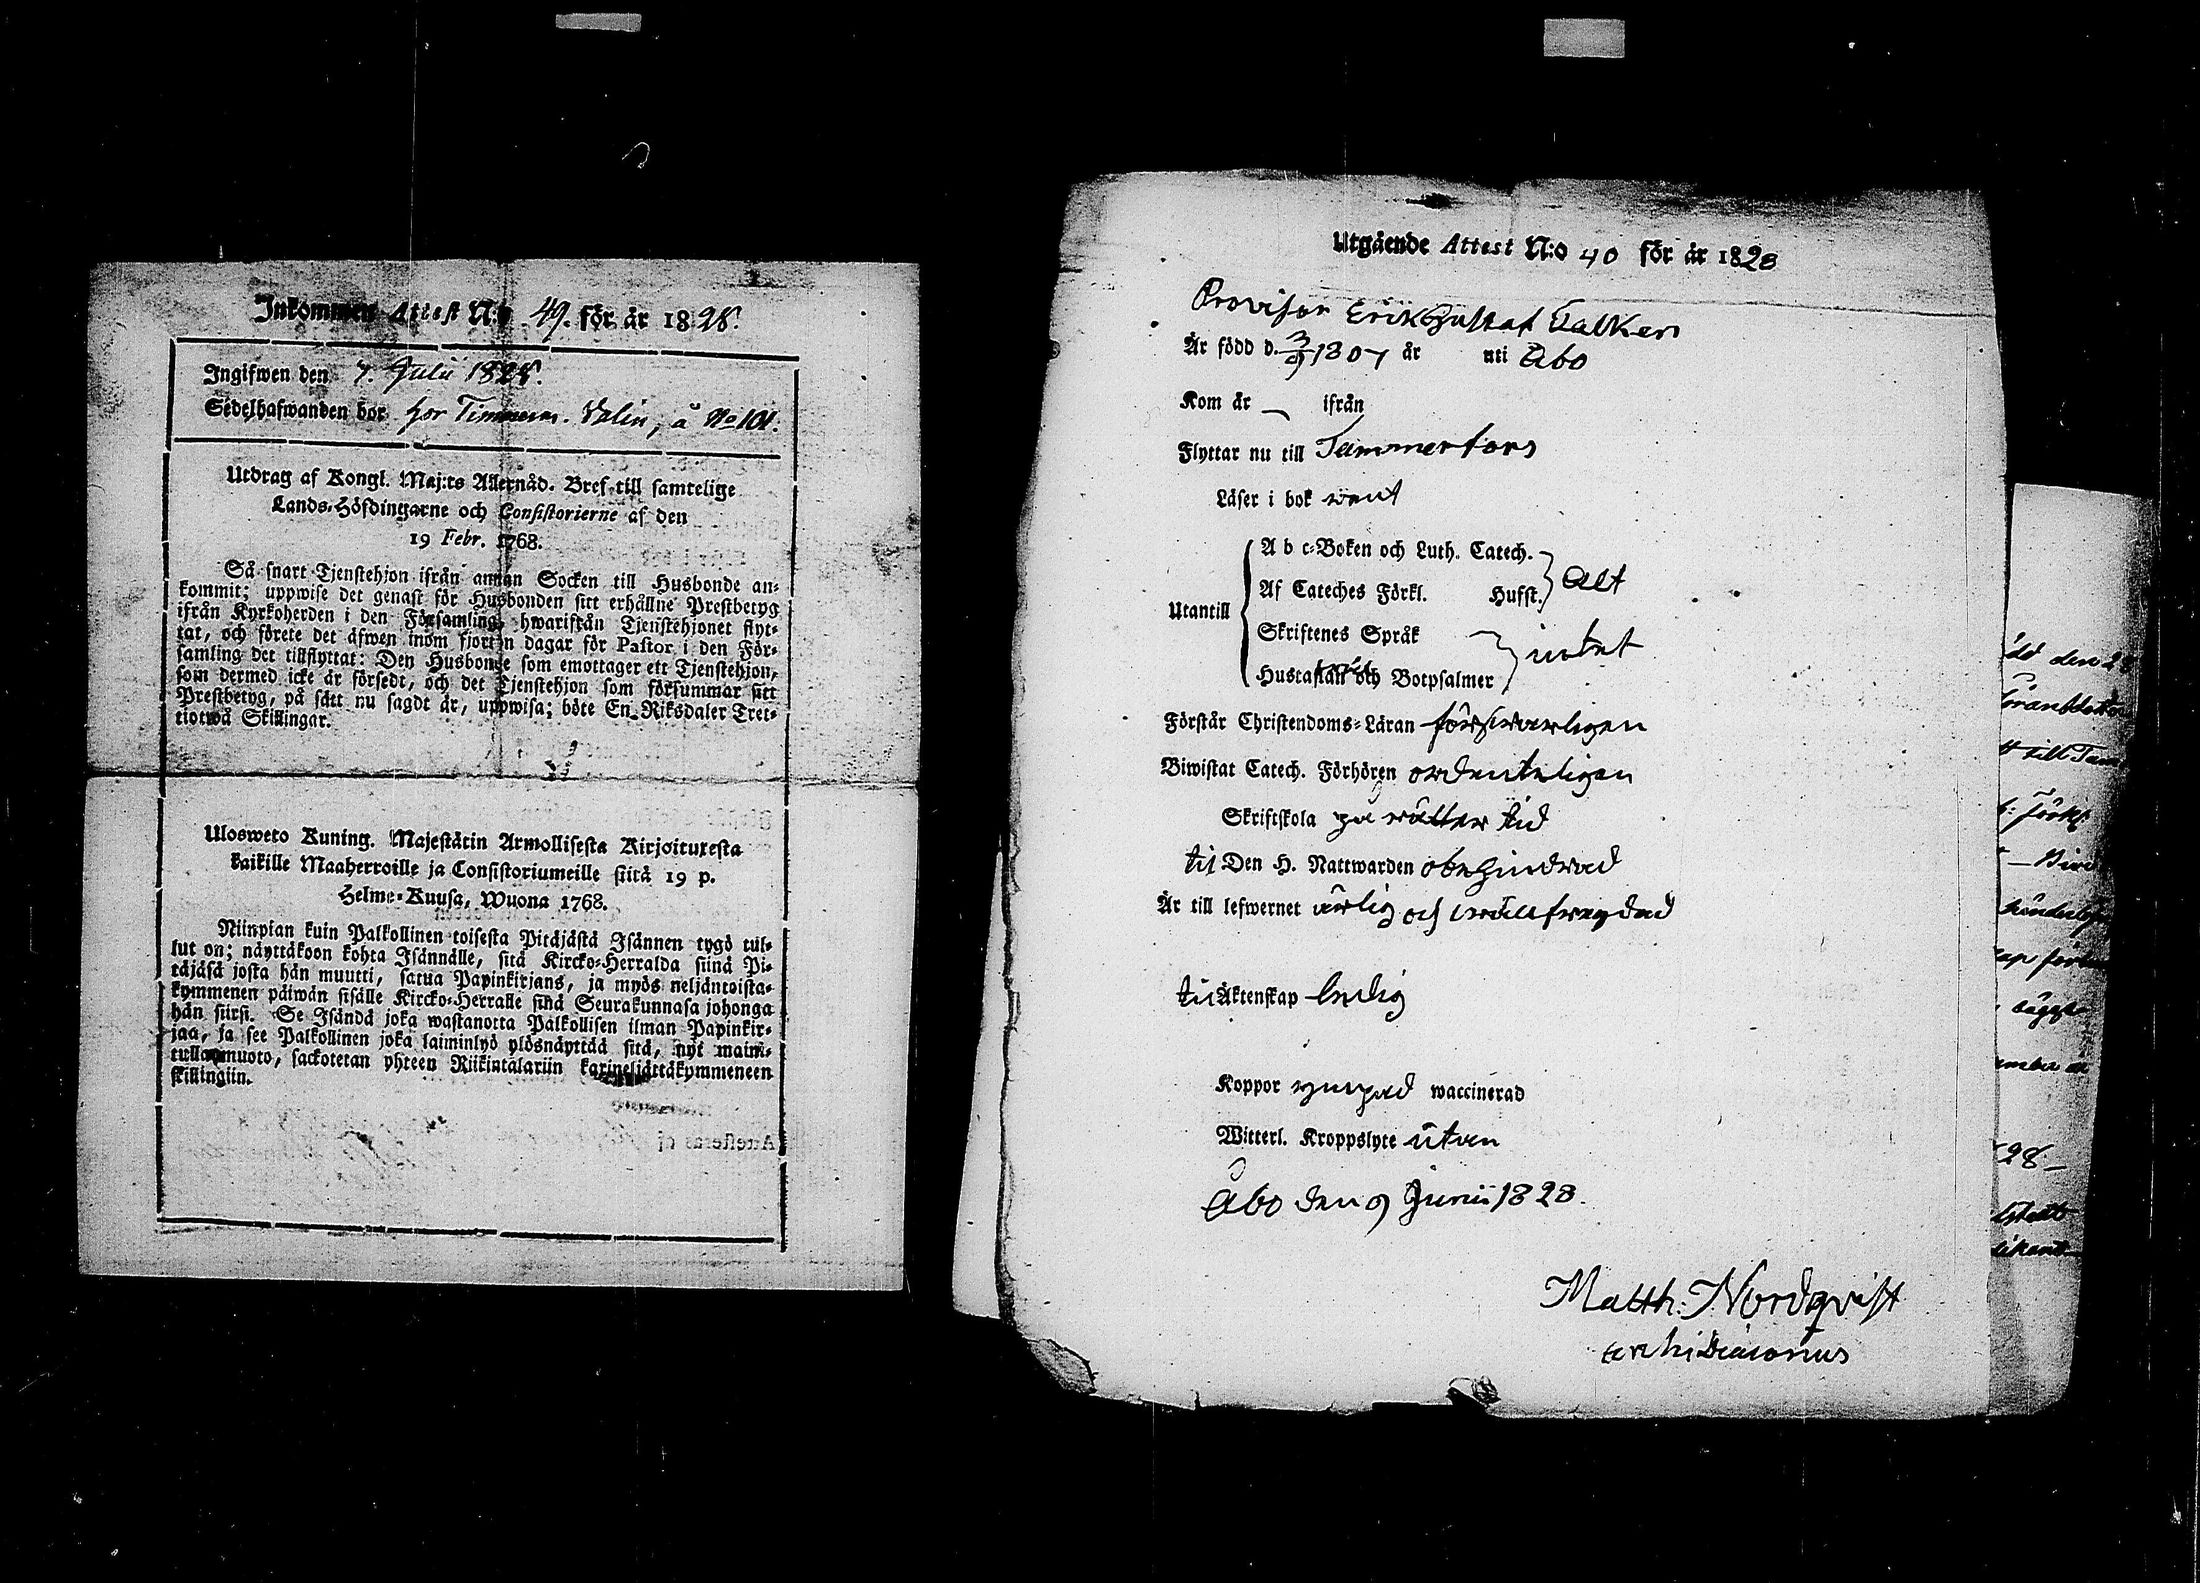 Inkommen Attest N:o 49. för år 1828.
Ingifwen den 7. Julii 1828.
Sedelhafwanden bor hos Timmerm. Valin, å No 101.
Utdrag af Kongl. Maj:ts Allernåd. Bref till samtelige
Lands-Höfdingarne och Consistorierne af den
19 Febr. 1768.
Så snart Tjenstehjon ifrån annan Socken till Husbonde an-
kommit; uppwise det genast för Husbonden sitt erhållne Prestbetyg
ifrån Kyrkoherden i den Församling, hwarifrån Tjenstehjonet flyt-
tat, och förete det äfwen inom fjorton dagar för Pastor i den För-
samling det tillflyttat: Den Husbonde som emottager ett Tjenstehjon,
som dermed icke är försedt, och det Tjenstehjon som försummar sitt
Prestbetyg, på sätt nu sagdt är, uppwisa; böte En Riksdaler Tret-
tiotwå Skillingar.
Ulosweto Kuning. Majestätin Armollisesta Kirjoituxesta
kaikille Maaherroille ja Consistoriumeille siitä 19 p.
Helme-Kuusa, Wuona 1768.
Niinpian kuin Palkollinen toisesta Pitäjästä Isännen tygö tul-
lut on; näyttäkoon kohta Isännälle, sitä Kircko-Herralda siinä Pi-
täjäsä josta hän muutti, saatua Papinkirjans, ja myös neljäntoista-
kymmenen päiwän sisälle Kircko-Herralle siinä Seurakunnasa johonga
hän siirsi. Se Isändä joka wastanotta Palkollisen ilman Papinkir-
jaa, ja see Palkollinen joka laiminlyö ylösnäyttää sitä, nyt maini-
tulla muoto, sackotetan yhteen Riikintalariin kaxineljättäkymmeneen
skillingiin.
Attesteras af
Utgående Attest N:o 40 för år 1828
Provisor Erik Gustaf Falken
Är född d. 3/9 1807 år uti Åbo
Kom år — ifrån
Flyttar nu till Tammerfors
Läser i bok rent
A b c-Boken och Luth. Catech.
Af Cateches Förkl. Husst. alt
Utantill
Skriftenes Språk
intet
Hustaflan och Botpsalmer
Förstår Christendoms-Läran försvarligen
Biwistat Catech. Förhören ordenteligen
Skriftskola på rätter tid
til Den H. Nattwarden obehindrad
Är till lefwernet ärlig och wälfrägdad
til Äktenskap ledig
Koppor ympad waccinerad
Witterl. Kroppslyte utan
Åbo den 9 Junii 1828.
Matth. Nordqvist
archiDiaconus
den 28
till Tam
28—